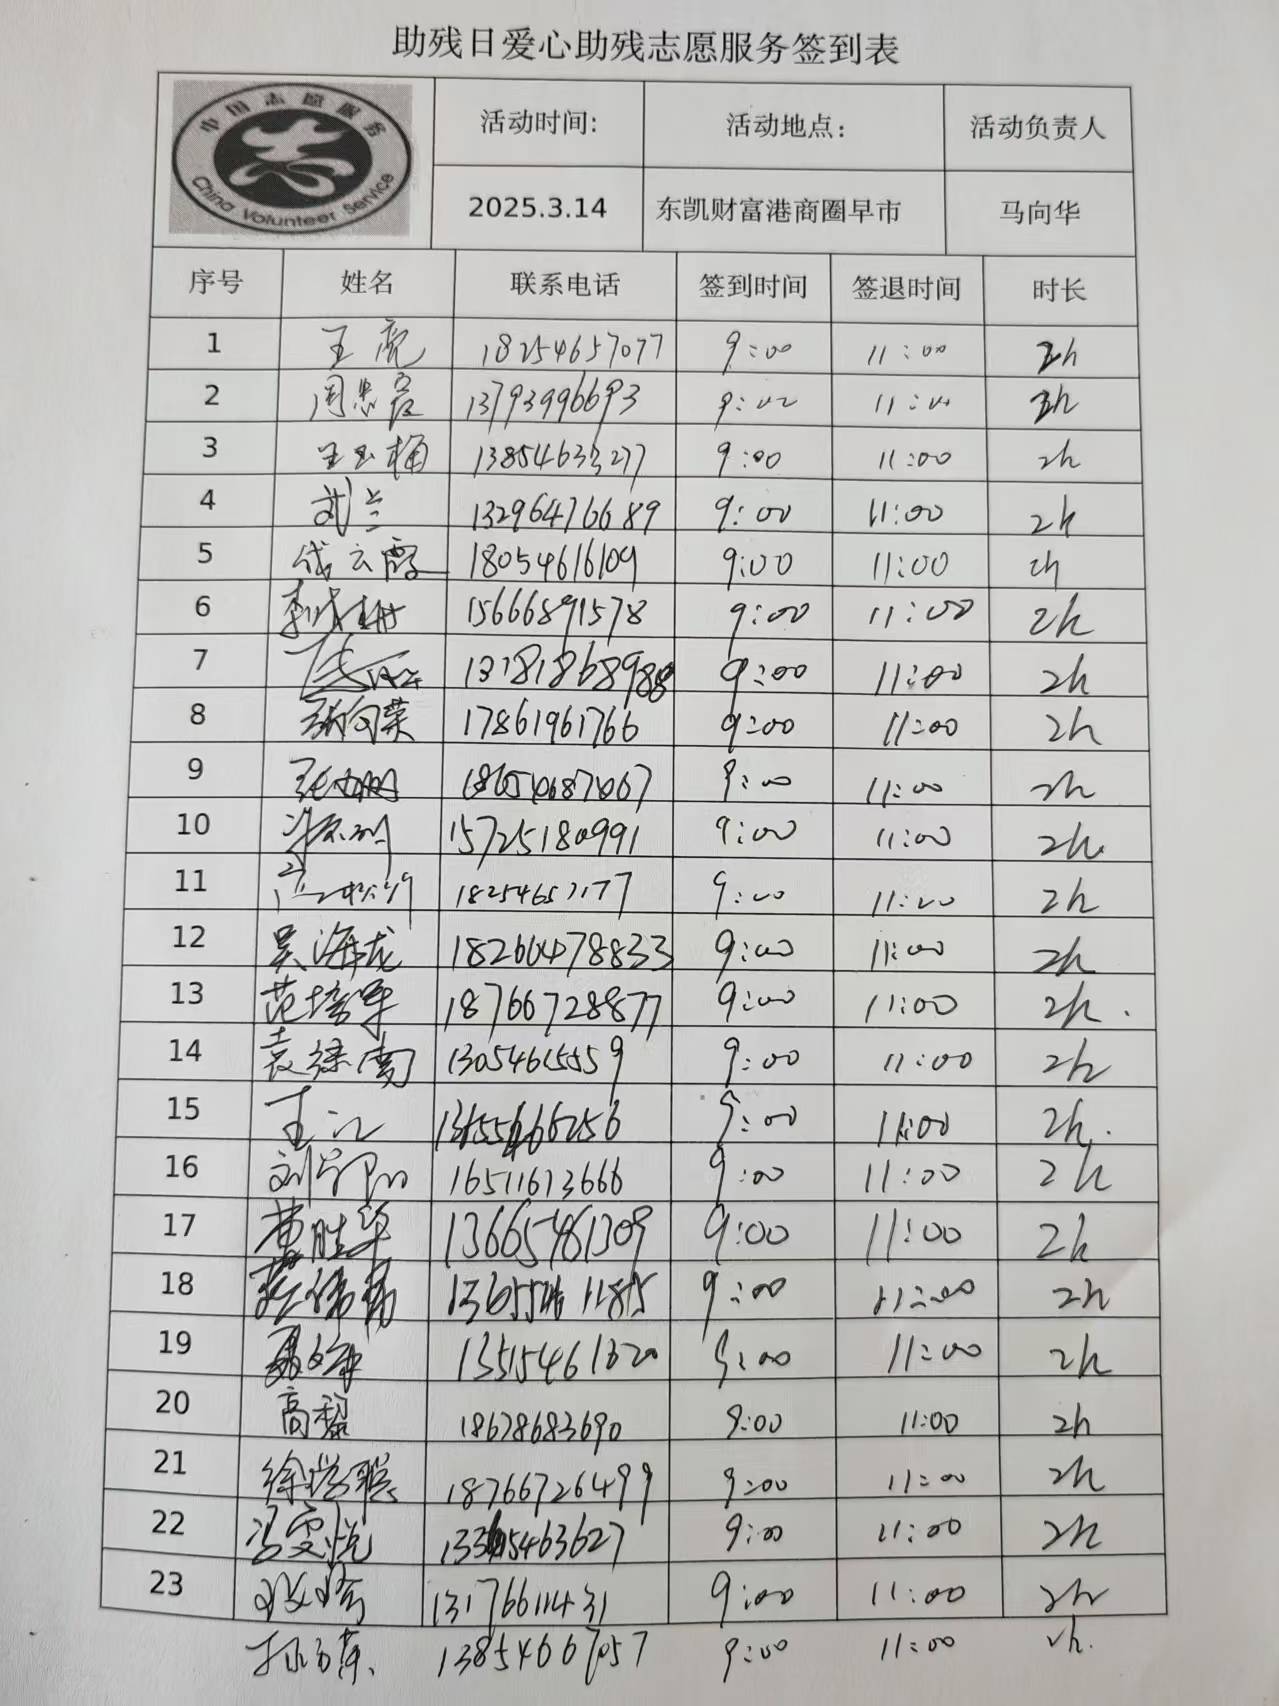 助残日爱心助残志愿服务签到表
中国志愿服务
China Volunteer Service
活动时间: 活动地点: 活动负责人
2025.3.14 东凯财富港商圈早市 马向华
序号 姓名 联系电话 签到时间 签退时间 时长
1 王虎 18254657077 9:00 11:00 2h
2 13793996693 9:00 11:00 2h
3 13854633277 9:00 11:00 2h
4 刘兰 13296476689 9:00 11:00 2h
5 云霞 18054616109 9:00 11:00 2h
6 15666891578 9:00 11:00 2h
7 9:00 11:00 2h
8 17861961766 9:00 11:00 2h
9 9:00 11:00 2h
10 15725180991 9:00 11:00 2h.
11 9:00 11:00 2h
12 吴海龙 18260478833 9:00 11:00 2h
13 范培军 18766728877 9:00 11:00 2h.
14 9:00 11:00 2h
15 王江 9:00 11:00 2h.
16 16511613666 9:00 11:00 2h
17 黄胜华 13665461309 9:00 11:00 2h
18 9:00 11:00 2h
19 13515461620 9:00 11:00 2h
20 高黎 18678683690 9:00 11:00 2h
21 18766726499 9:00 11:00 2h
22 冯雯悦 9:00 11:00 2h
23 9:00 11:00 2h
13854667057 9:00 11:00 2h.